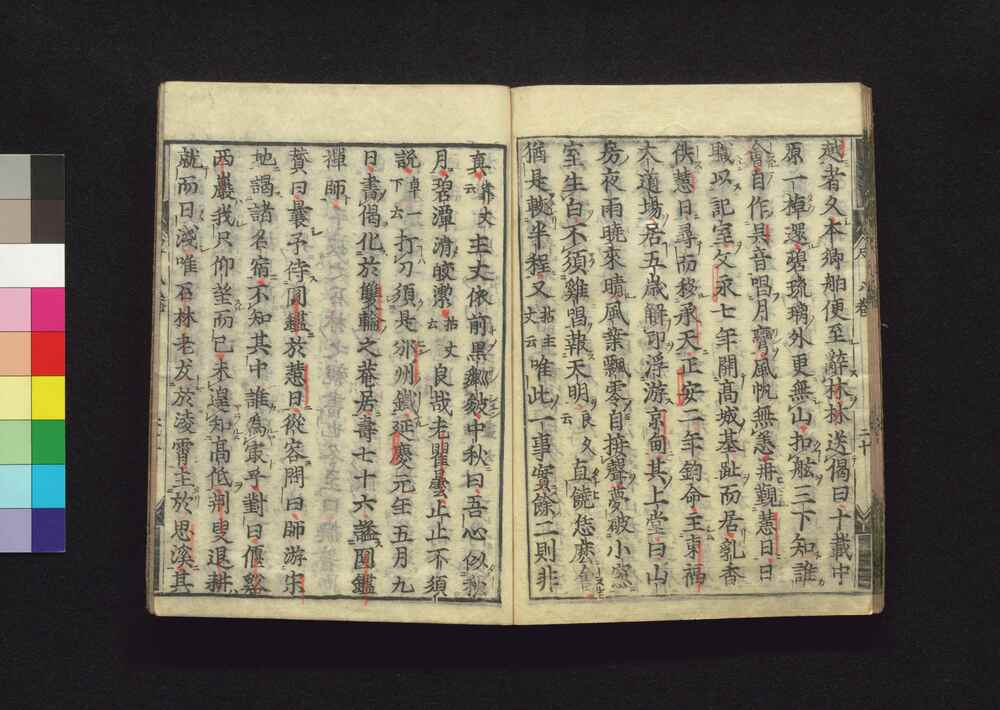 越者久本鄉舶便至辭林林送偈曰十載中
原一棹還碧琉璃外更無山扣舷三下知誰
會自作呉音唱月彎風帆無恙再覲慧日日
職以記室文永七年開高城基趾而居乳香
供慧日尋而移承天正安二年鈞命主東福
大道場居五歲解印浮游京甸其上堂曰山
房夜雨曉來晴風葉飄零自接聲夢破小窓
室生白不須雞唱報天明云良久直饒恁麼會
猶是較半程又拈主丈云唯此一事實餘二則非
真靠丈云主丈依前黑中秋曰吾心似秋
月碧潭清皎潔拈丈云良哉老瞿曇止止不須
說卓一下六一打刀須是邠州鐵延慶元年五月九
日書偈化於雙輪之菴居壽七十六謚圓鑑
禪師
贊曰曩予侍圓鑑於慧日從容問曰師游宋
地謁諸名宿不知其中誰為最乎對曰偃谿
西巖我只仰望而已未遑知高低荊叟退耕
就而日淺唯石林老友於凌霄主於思溪其
八卷
二十